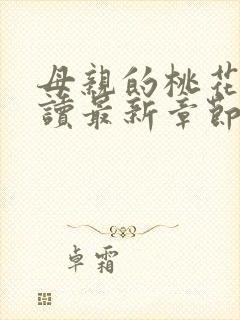 母親的桃花
讀最新章節
卓霜